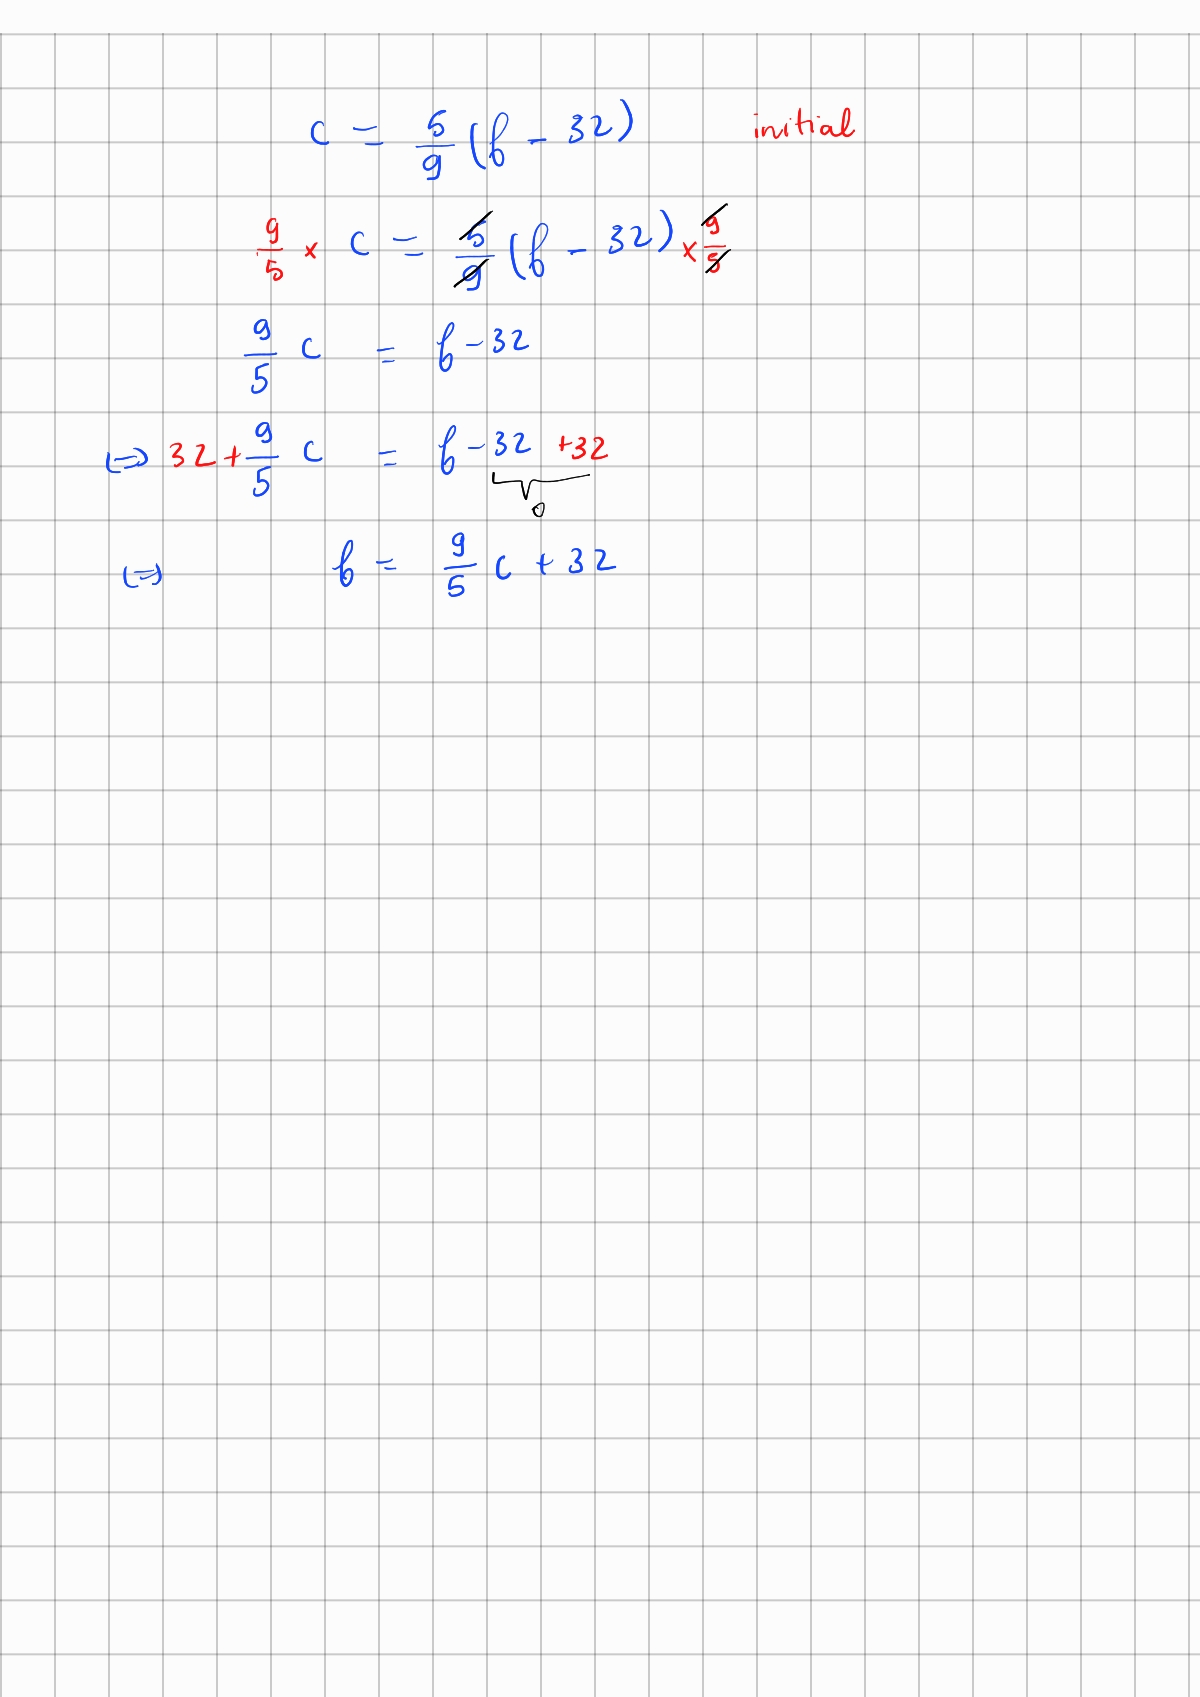 c = 5/9 (f - 32) initial
9/5 × c = 5/9 (f - 32) × 9/5
9/5 c = f - 32
⇔ 32 + 9/5 c = f - 32 + 32
0
⇔ f = 9/5 c + 32